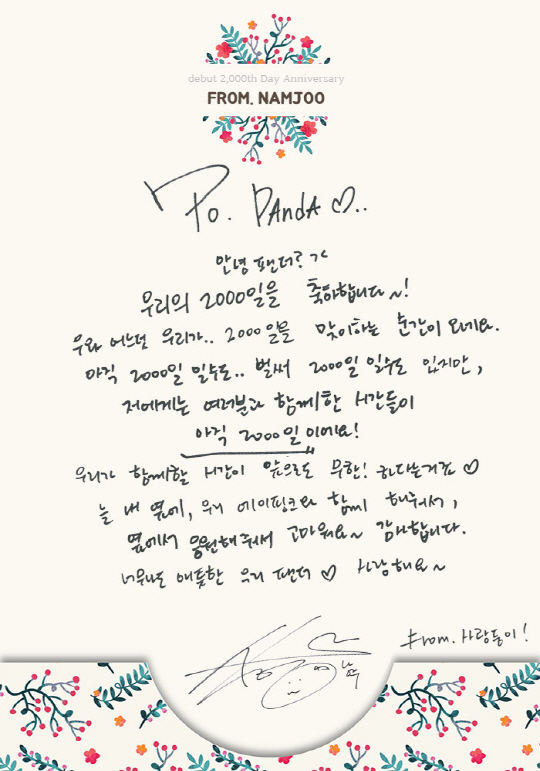 debut 2,000th Day Anniversary
FROM. NAMJOO
To. PANdA ♡..
안녕 팬더? ㅅㄴ
우리의 2000일을 축하합니다~!
우와 어느덧 우리가.. 2000일을 맞이하는 순간이 오네요.
아직 2000일 일수도.. 벌써 2000일 일수도 있지만,
저에게는 여러분과 함께한 시간들이
아직 2000일이에요!
우리가 함께할 시간이 앞으로도 무한! 하다는거죠 ♡
늘 내 옆에, 우리 에이핑크와 함께 해줘서,
옆에서 응원해주셔서 고마워요~ 감사합니다.
너무나도 애틋한 우리 팬더 ♡ 사랑해요~
From. 사랑둥이!